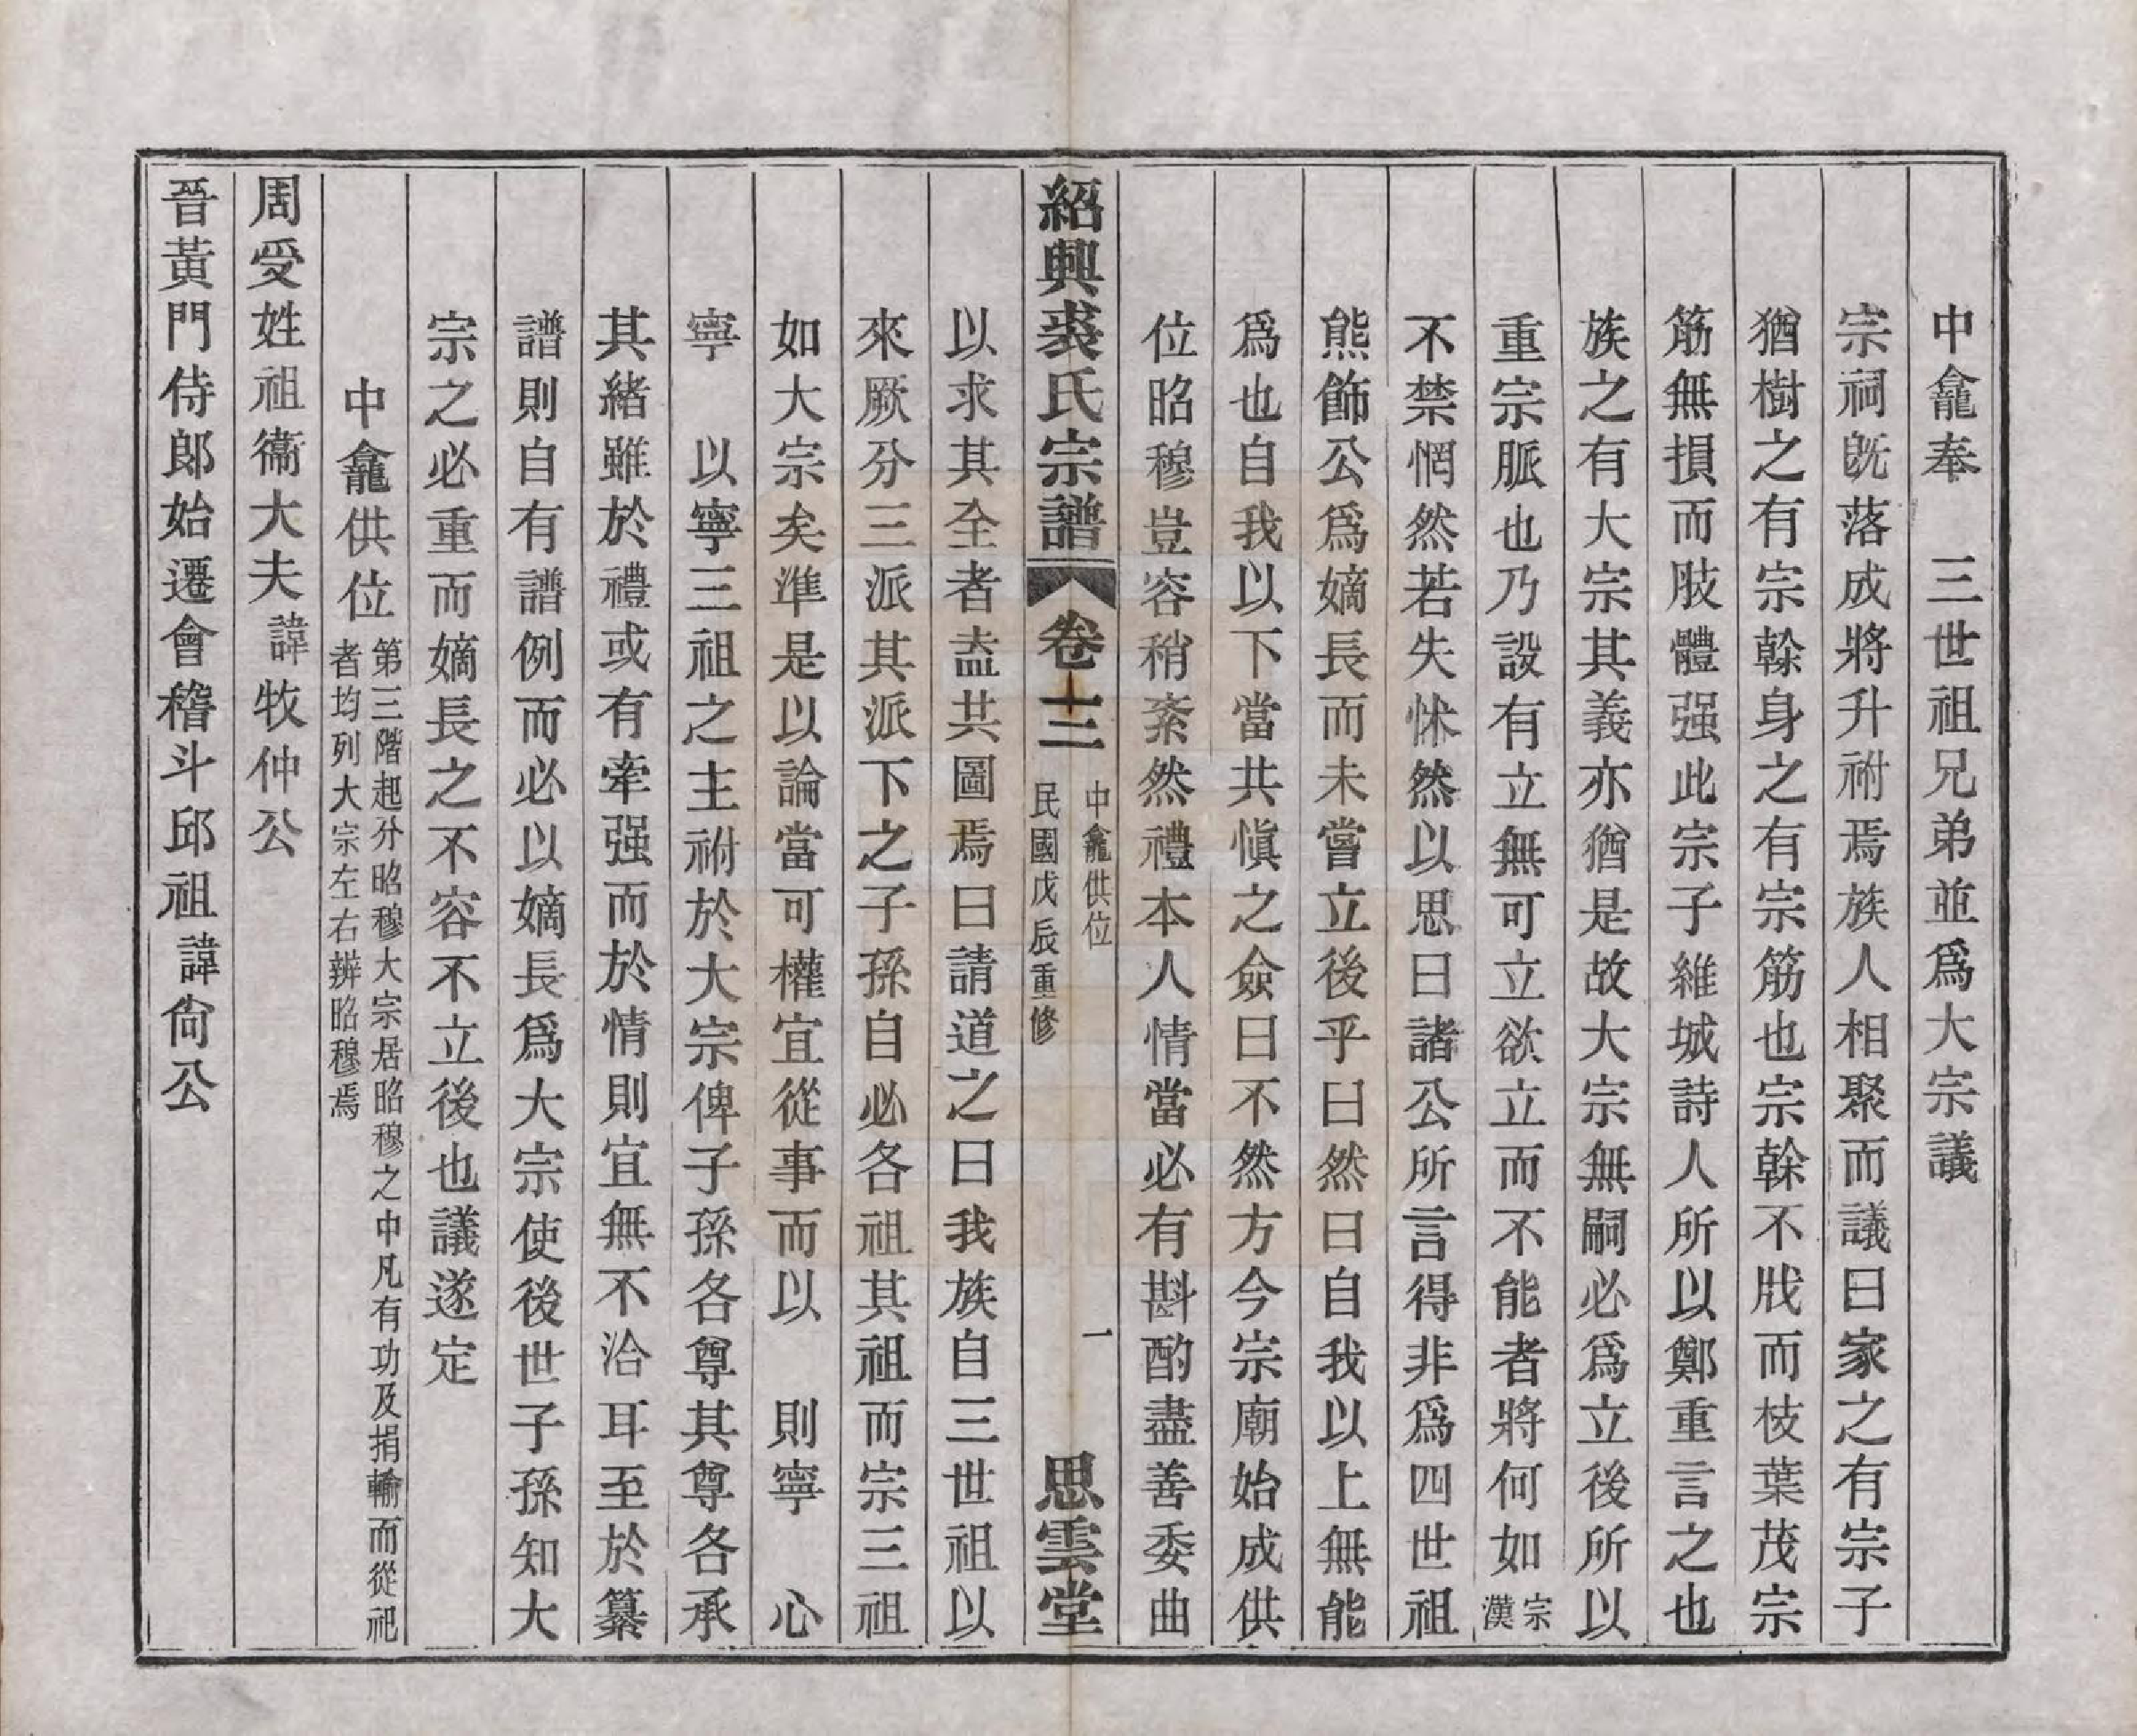 中龕奉　三世祖兄弟並爲大宗議
宗祠旣落成將升祔焉族人相聚而議曰家之有宗子
猶樹之有宗榦身之有宗筋也宗榦不戕而枝葉茂宗
筋無損而肢體强此宗子維城詩人所以鄭重言之也
族之有大宗其義亦猶是故大宗無嗣必爲立後所以
重宗脈也乃設有立無可立欲立而不能者將何如宗漢
不禁惘然若失怵然以思曰諸公所言得非爲四世祖
熊飾公爲嫡長而未嘗立後乎曰然曰自我以上無能
爲也自我以下當共愼之僉曰不然方今宗廟始成供
位昭穆豈容稍紊然禮本人情當必有斟酌盡善委曲
紹興裘氏宗譜
卷十三
中龕供位
民國戊辰重修
一
思雲堂
以求其全者盍共圖焉曰請道之曰我族自三世祖以
來厥分三派其派下之子孫自必各祖其祖而宗三祖
如大宗矣準是以論當可權宜從事而以　則寧　心
寧　以寧三祖之主祔於大宗俾子孫各尊其尊各承
其緒雖於禮或有牽强而於情則宜無不洽耳至於纂
譜則自有譜例而必以嫡長爲大宗使後世子孫知大
宗之必重而嫡長之不容不立後也議遂定
中龕供位
第三階起分昭穆大宗居昭穆之中凡有功及捐輸而從祀
者均列大宗左右辨昭穆焉
周受姓祖衞大夫諱牧仲公
晉黃門侍郎始遷會稽斗邱祖諱尙公